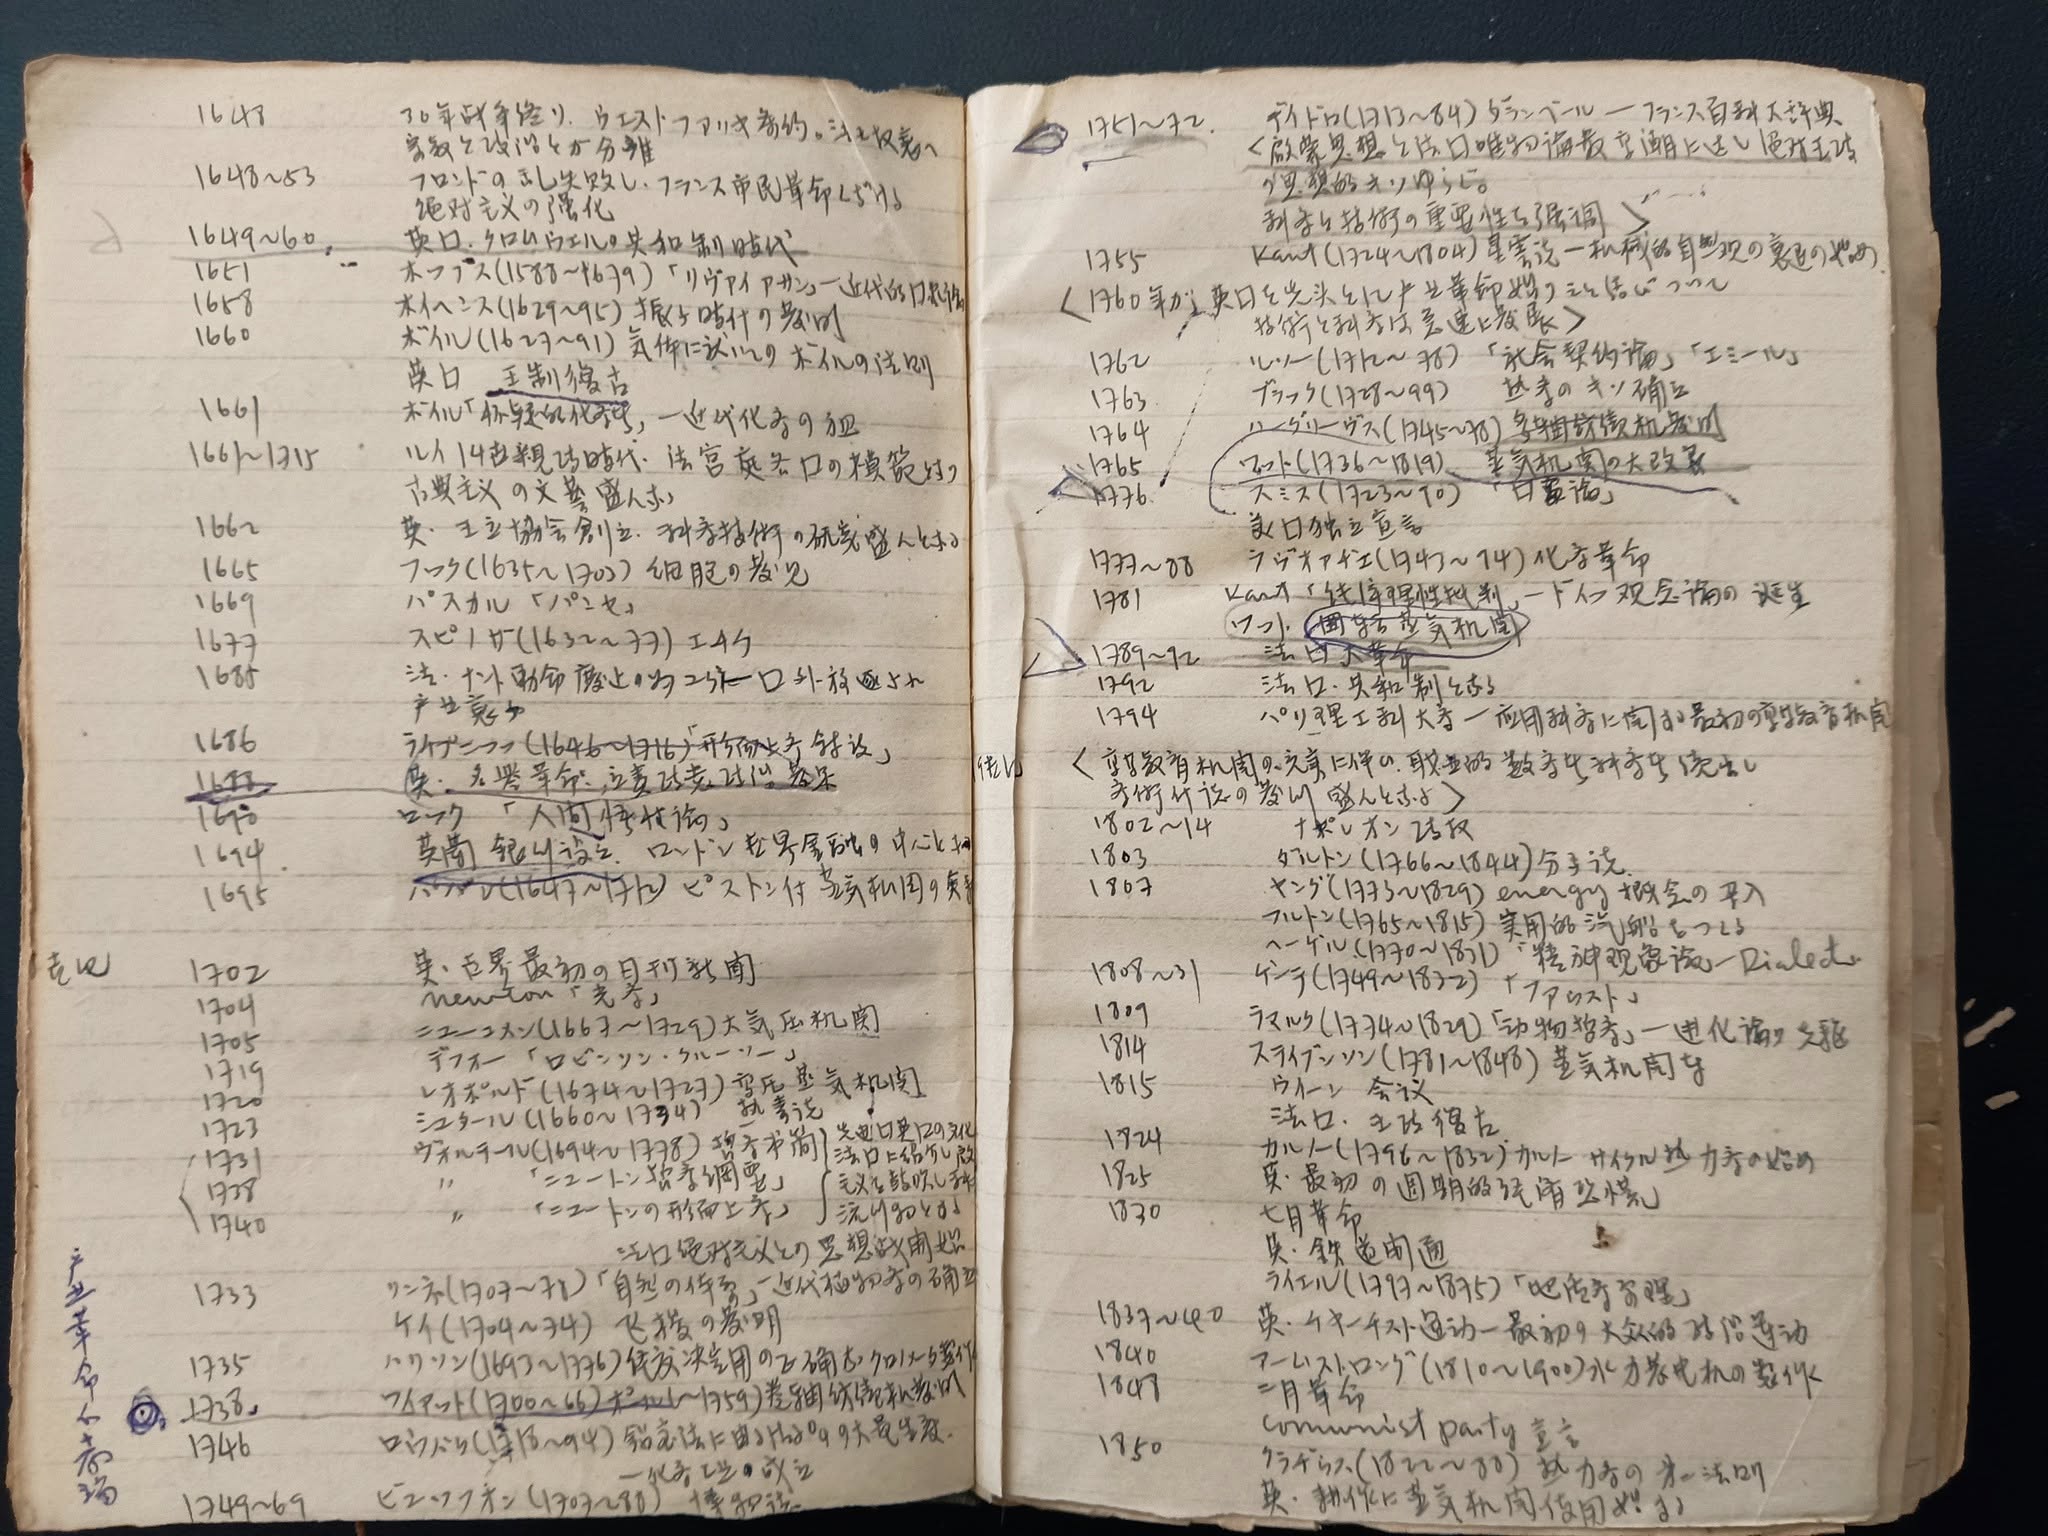 1648 30年战争終り、ウエストファリヤ条約。
宗教と政治とが分離
1648~53 フロンドの乱失敗し、フランス市民革命
絶対主义の强化
1649~60 英口、クロムウエルの共和制時代
1651 ホッブス(1588~1679)「リヴァイアサン」一近代的口
1658 ホイヘンス(1629~95)振子時計の発明
1660 ボイル(1627~91)気体に就いてのボイルの法则
英口 王制復古
1661 ボイル「怀疑的化学者」一近代化学の祖
1661~1715 ルイ14世親政時代、法宮廷各口の模範
古典主义の文芸盛ん
1662 英・王立協会創立、科学技術の研究盛んとなる
1665 フック(1635~1703)細胞の発见
1669 パスカル「パンセ」
1677 スピノザ(1632~77)エチケ
1685 法・ナント勅令廃止の
产业衰ふ
1686 ライプニッツ(1646~1716)「形而上学叙説」
1688 英・名誉革命、立憲政
1690 ロック「人间悟性論」
1694 英蘭銀行設立、ロンドン世界金融の中心と
1695 パパン(1647~1712)ピストン付蒸気机関の
1702 英・世界最初の日刊新聞
1704 Newton「光学」
1705 ニューコメン(1663~1729)大気圧机関
1719 デフォー「ロビンソン・クルーソー」
1720 レオポルド(1674~1727)高圧蒸気机関
1723 シュタール(1660~1734)熱素说
1731 ヴォルテール(1694~1778)哲学书简
1738 〃 「ニュートン哲学綱要」
1740 〃 「ニュートンの形而上学」
先進口英口の文化
法口に紹介し
法口絶対主义との思想战開始
1733 リンネ(1707~78)「自然の体系」一近代植物学の確立
ケイ(1704~74)飞梭の発明
1735 ハリソン(1693~1776)经度決定用の正確なクロノメータ製作
1738 ワイアット(1700~66)ポール(~1759)紡績机発明
1746 ロウバック(1718~94)鉛室法に由る の大量生産
一化学工业の成立
1749~69 ビュッフオン(1707~88)博物誌
产业革命
1751~72 デイドロ(1713~84)ダランベール一フランス百科大辞典
<啟蒙思想と法口唯物論最高潮に达し絶対主政
の思想的キソゆらぐ。
科学と技術の重要性を强调>
1755 Kant(1724~1804)星雲说一机械的自然观の衰退の始め
<1760年から英口を先头とし产业革命始りこと结びついて
技術と科学は急速に発展>
1762 ルソー(1712~78)「社会契約論」「エミール」
1763 ブラック(1728~99)熱学のキソ確立
1764 ハーグリーヴス(1745~78)多軸紡績机発明
1765 ワット(1736~1819)、蒸気机関の大改良
1776 スミス(1723~90)「口富論」
美口独立宣言
1777~88 ラヴオアヂエ(1743~94)化学革命
1781 Kant「純粋理性批判」一ドイツ观念論の誕生
ワット 回転蒸気机関
1789~92 法口大革命
1792 法口・共和制となる
1794 パリ理工科大学一应用科学に関する最初の高等教育机関
<高等教育机関の充実に伴い、职业的数学者科学者続出し
学術 の発行盛んとなる>
1802~14 ナポレオン政权
1803 ダルトン(1766~1844)分子说
1807 ヤング(1773~1829)energy概念の导入
フルトン(1765~1815)実用的汽船をつくる
ヘーゲル(1770~1831)「精神现象論」一Dialect
1808~31 ゲーテ(1749~1832)「ファウスト」
1809 ラマルク(1774~1829)「动物哲学」一進化論の先駆
1814 スティブンソン(1781~1848)蒸気机関车
1815 ウィーン会议
法口・王政復古
1824 カルノー(1796~1832)カルノーサイクル熱力学の始め
1825 英・最初の週期的经済恐慌
1830 七月革命
英・鉄道開通
ライエル(1797~1875)「地质学原理」
1837~40 英・チャーチスト运动一最初の大众的政治运动
1840 アームストロング(1810~1900)水力発电机の製作
1848 二月革命
Communist party宣言
1850 クラヂウス(1822~88)熱力学の 法则
英・耕作に蒸気机関使用始まる